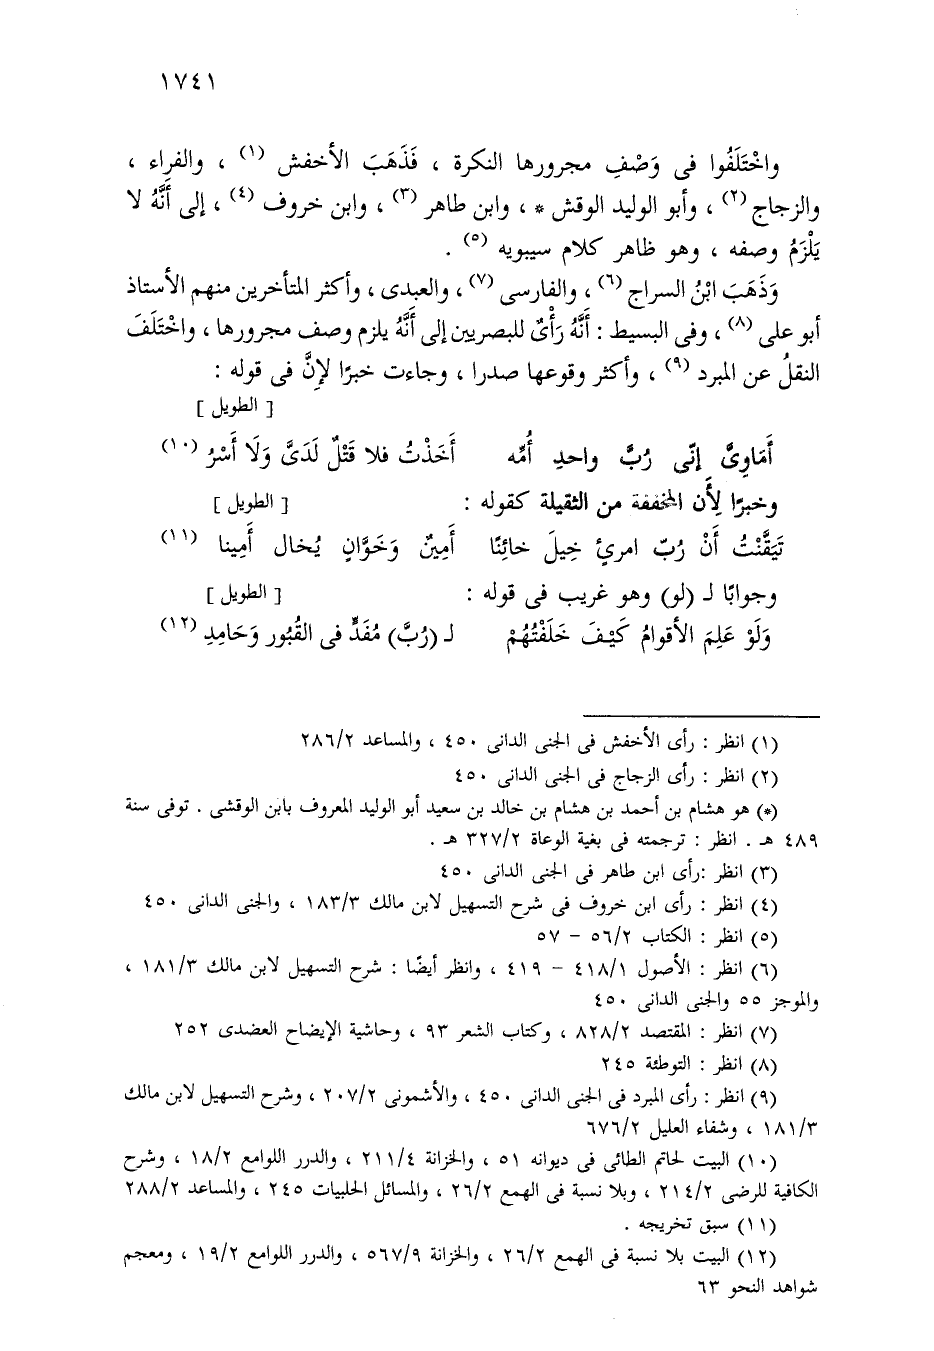 ١٧٤١
واخْتَلَفُوا فى وَصْفِ مجرورها النكرة ، فَذَهَبَ الأخفش (١) ، والفراء ،
والزجاج (٢) ، وأبو الوليد الوقش * ، وابن طاهر (٣) ، وابن خروف (٤) ، إلى أَنَّهُ لا
يَلْزَمُ وصفه ، وهو ظاهر كلام سيبويه (٥) .
وَذَهَبَ ابْنُ السراج (٦) ، والفارسى (٧) ، والعبدى ، وأكثر المتأخرين منهم الأستاذ
أبو على (٨) ، وفى البسيط : أَنَّهُ رَأْىٌ للبصريين إلى أَنَّهُ يلزم وصف مجرورها ، واخْتَلَفَ
النقلُ عن المبرد (٩) ، وأكثر وقوعها صدرا ، وجاءت خبرًا لإنَّ فى قوله :
[ الطويل ]
أَمَاوِىَّ إنّى رُبَّ واحدِ أُمِّه أَخَذْتُ فلا قَتْلٌ لَدَىَّ وَلَا أَسْرُ (١٠)
وخبرًا لِأَن المخففة من الثقيلة كقوله : [ الطويل ]
تَيَقَّنْتُ أَنْ رُبّ امرئ خِيلَ خائِنًا أَمِينٌ وَخَوَّانٍ يُخال أَمِينا (١١)
وجوابًا لـ (لو) وهو غريب فى قوله : [ الطويل ]
وَلَوْ عَلِمَ الأقوامُ كَيْفَ خَلَفْتُهُمْ لـ (رُبَّ) مُفَدٍّ فى القُبُور وَحَامِدِ (١٢)
(١) انظر : رأى الأخفش فى الجنى الدانى ٤٥٠ ، والمساعد ٢٨٦/٢
(٢) انظر : رأى الزجاج فى الجنى الدانى ٤٥٠
(*) هو هشام بن أحمد بن هشام بن خالد بن سعيد أبو الوليد المعروف بابن الوقشى . توفى سنة
٤٨٩ هـ . انظر : ترجمته فى بغية الوعاة ٣٢٧/٢ هـ .
(٣) انظر :رأى ابن طاهر فى الجنى الدانى ٤٥٠
(٤) انظر : رأى ابن خروف فى شرح التسهيل لابن مالك ١٨٣/٣ ، والجنى الدانى ٤٥٠
(٥) انظر : الكتاب ٥٦/٢ – ٥٧
(٦) انظر : الأصول ٤١٨/١ – ٤١٩ ، وانظر أيضًا : شرح التسهيل لابن مالك ١٨١/٣ ،
والموجز ٥٥ والجنى الدانى ٤٥٠
(٧) انظر : المقتصد ٨٢٨/٢ ، وكتاب الشعر ٩٣ ، وحاشية الإيضاح العضدى ٢٥٢
(٨) انظر : التوطئة ٢٤٥
(٩) انظر : رأى المبرد فى الجنى الدانى ٤٥٠ ، والأشمونى ٢٠٧/٢ ، وشرح التسهيل لابن مالك
١٨١/٣ ، وشفاء العليل ٦٧٦/٢
(١٠) البيت لحاتم الطائى فى ديوانه ٥١ ، والخزانة ٢١١/٤ ، والدرر اللوامع ١٨/٢ ، وشرح
الكافية للرضى ٢١٤/٢ ، وبلا نسبة فى الهمع ٢٦/٢ ، والمسائل الحلبيات ٢٤٥ ، والمساعد ٢٨٨/٢
(١١) سبق تخريجه .
(١٢) البيت بلا نسبة فى الهمع ٢٦/٢ ، والخزانة ٥٦٧/٩ ، والدرر اللوامع ١٩/٢ ، ومعجم
شواهد النحو ٦٣